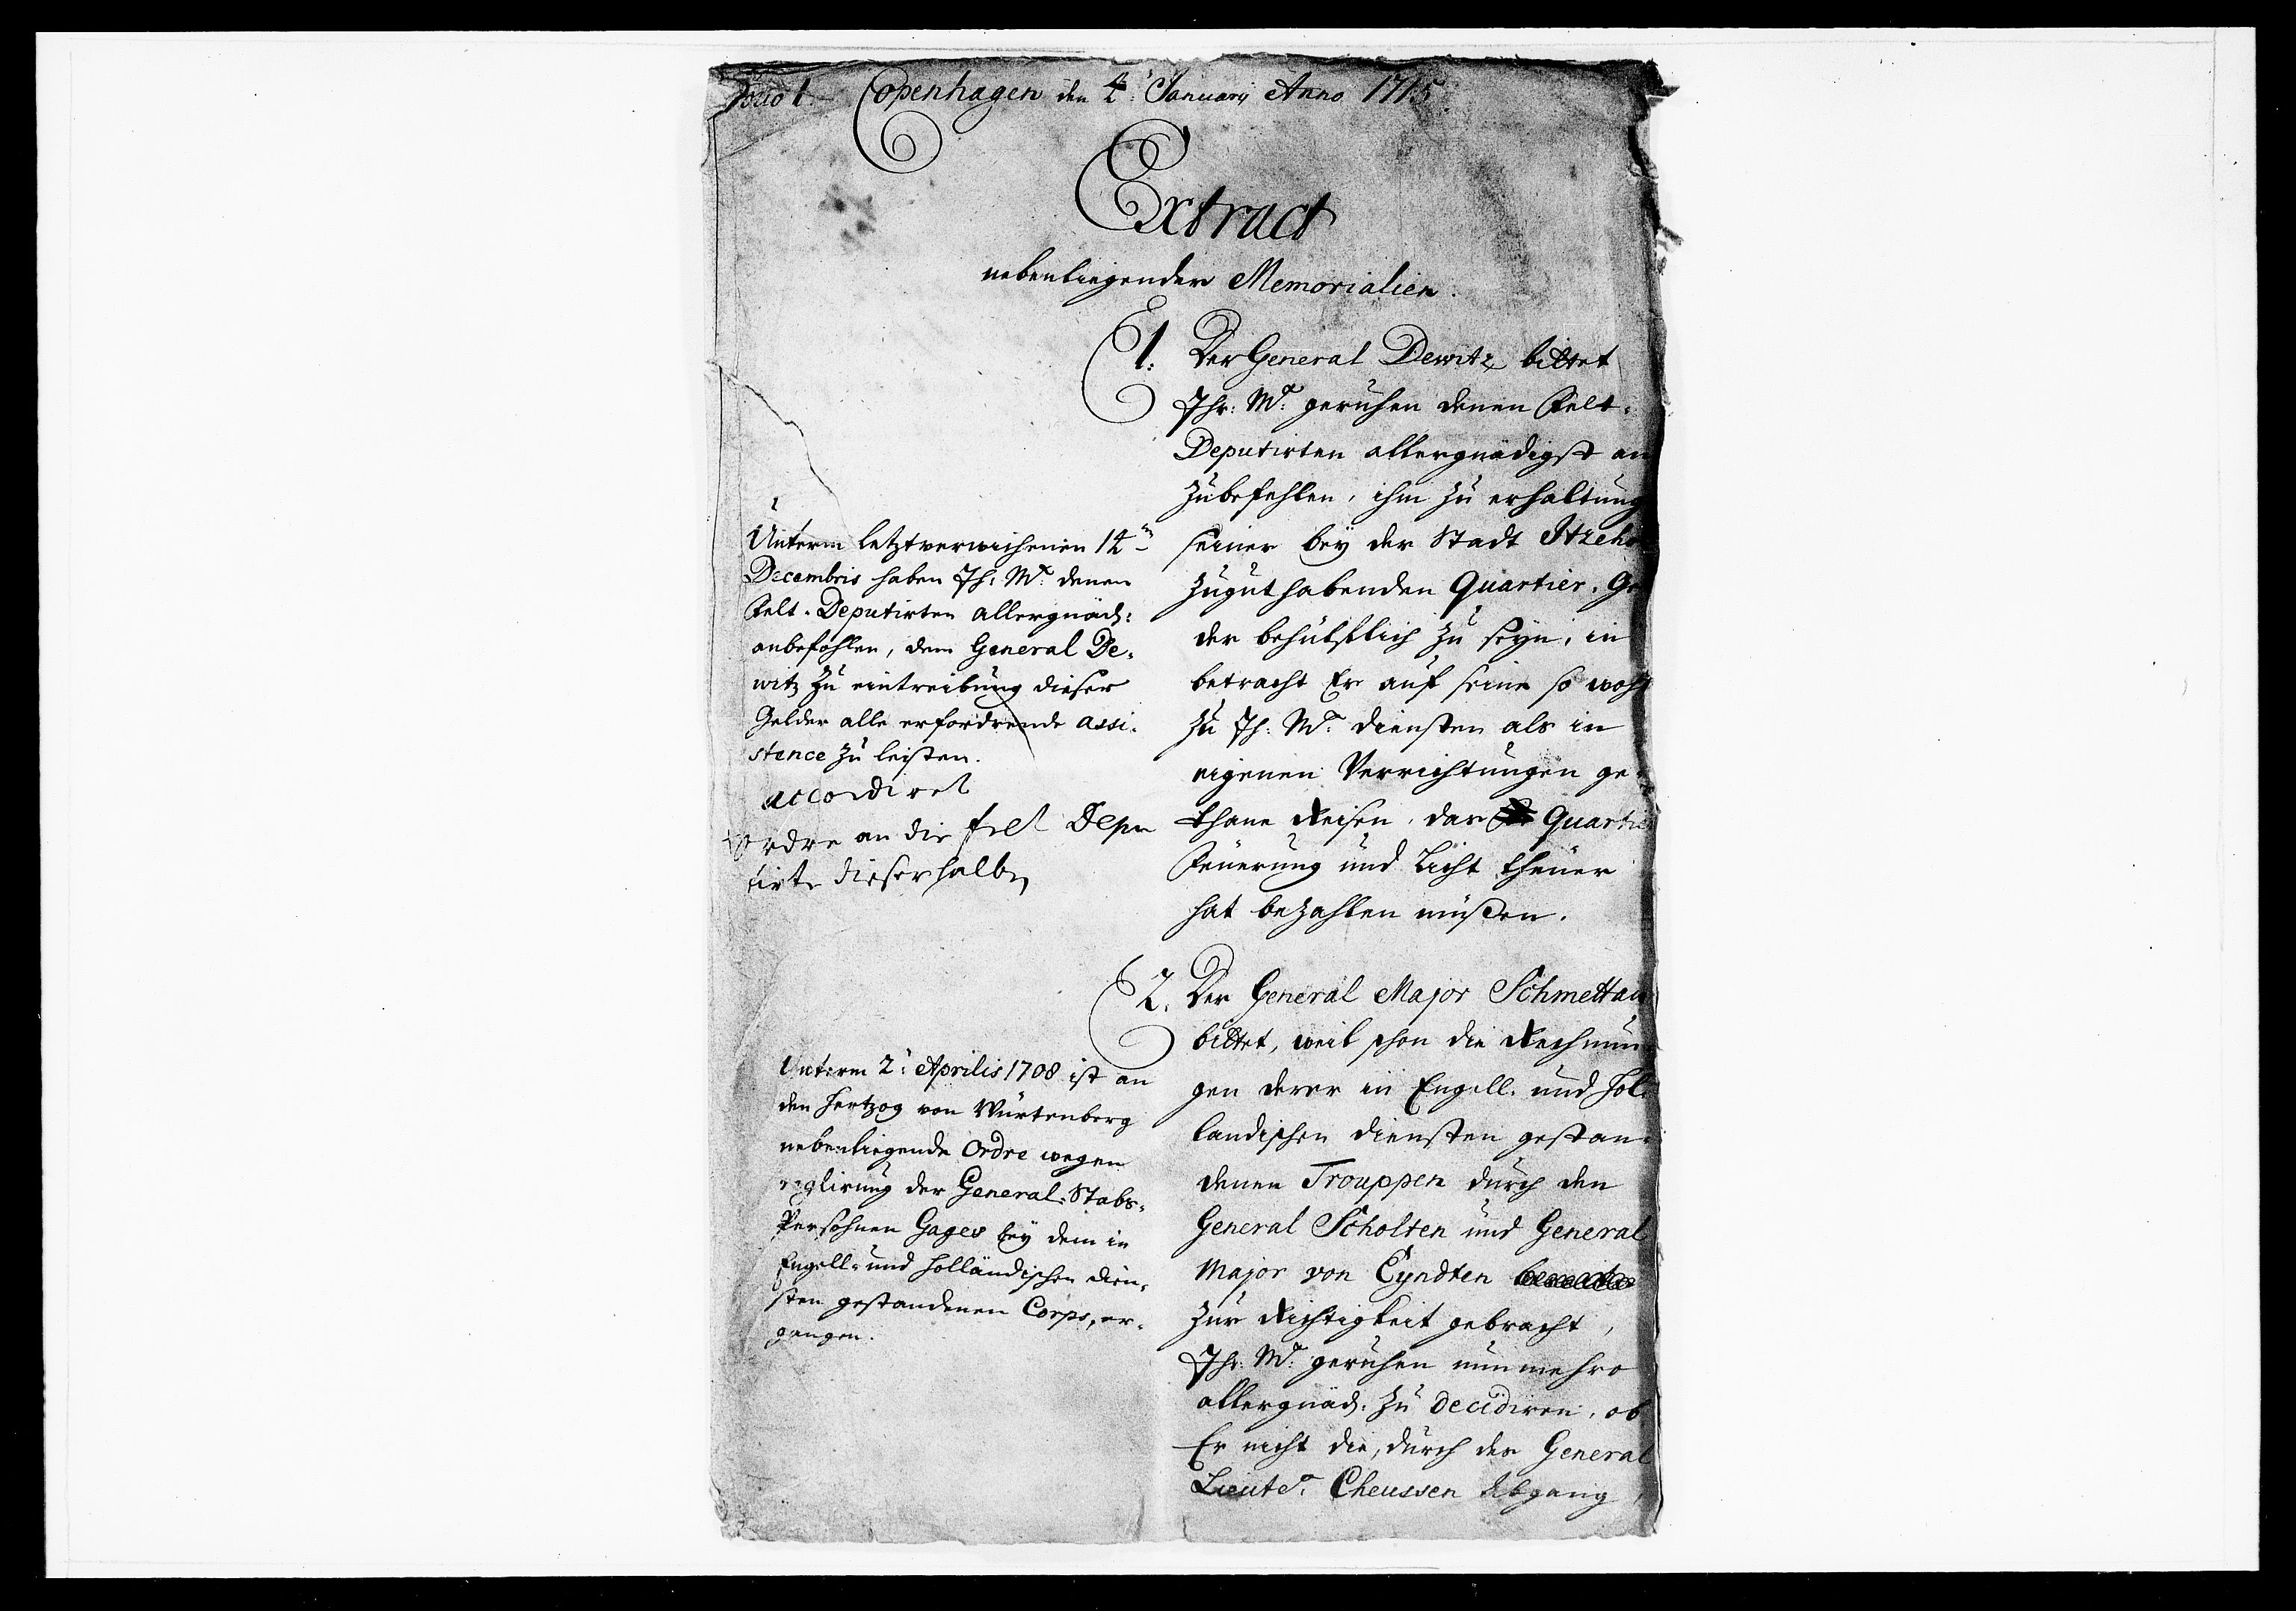 Copenhagen den 4t: Januarij Anno 1715.
Extract
nebenliegender Memorialien.
1. Der General Dewitz bittet
Ihr: Mt: geruhen denen Felt-
Deputirten allergnädigst an
zubefehlen, ihm zu erhaltung
seiner bey der Stadt Itzeho
zuguthabenden Quartier-Ge
der behülfflich zu seyn, in
betracht Er auf seine so wohl
zu Ih: Mt: diensten als in
eigenen Verrichtungen ge-
thane Reisen, das Quartie
Feüerung und Licht theüer
hat bezahlen müßen.
Unterm letztverwichenen 14ten
Decembris haben Ih: Mt: denen
Felt-Deputirten allergnäd:
anbefohlen, dem General De-
witz zu eintreibung dieser
Gelder alle erfordrende assi-
stence zu leisten.
accordiret
Ordre an die felt Depu
tirte dieserhalben
2. Der General Major Schmettau
bittet, weil schon die Rechnun
gen derer in Engell- und Hol-
landischen diensten gestan-
denen Trouppen durch den
General Scholten und General
Major von Eyndten
zur Richtigkeit gebracht,
Ihr: Mt: geruhen nunmehro
allergnäd: zu decidiren, ob
Er nicht die, durch des General
Lieutet: Cheussen Abgang,
Unterm 2: Aprilis 1708 ist an
den Hertzog von Würtenberg
nebenliegende Ordre wegen
reglirung der General-Stabs-
Persohnen Gages bey dem in
Engell- und Holländischen dien-
sten gestandenen Corps, er-
gangen.